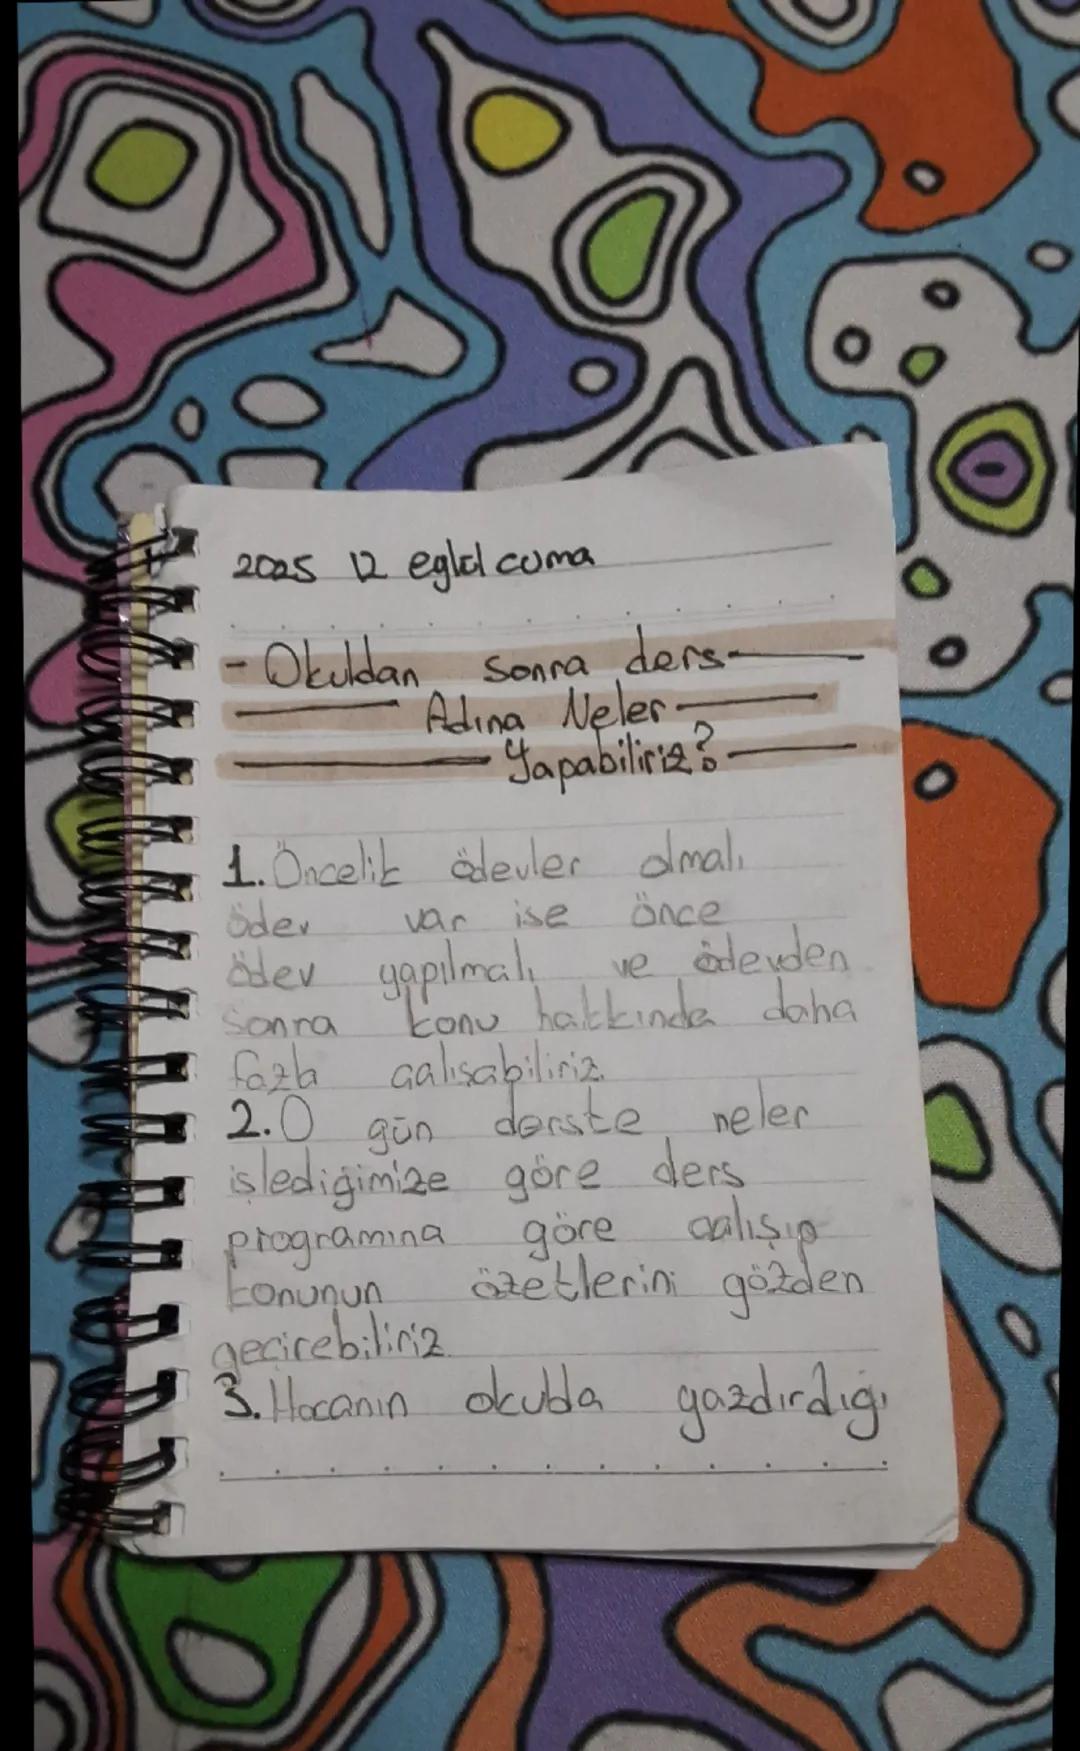 2025 12 eylül cuma
- Okuldan sonra ders
Adına Neler
Yapabiliriz?
1. Öncelik ödevler olmalı
ödev var ise önce
ödev yapılmalı ve ödevden
sonra konu hakkında daha
fazla çalışabiliriz.
2. O gün derste neler
işlediğimize göre ders
programına göre çalışıp
konunun özetlerini gözden
geçirebiliriz.
3. Hocanın okulda yazdırdığı